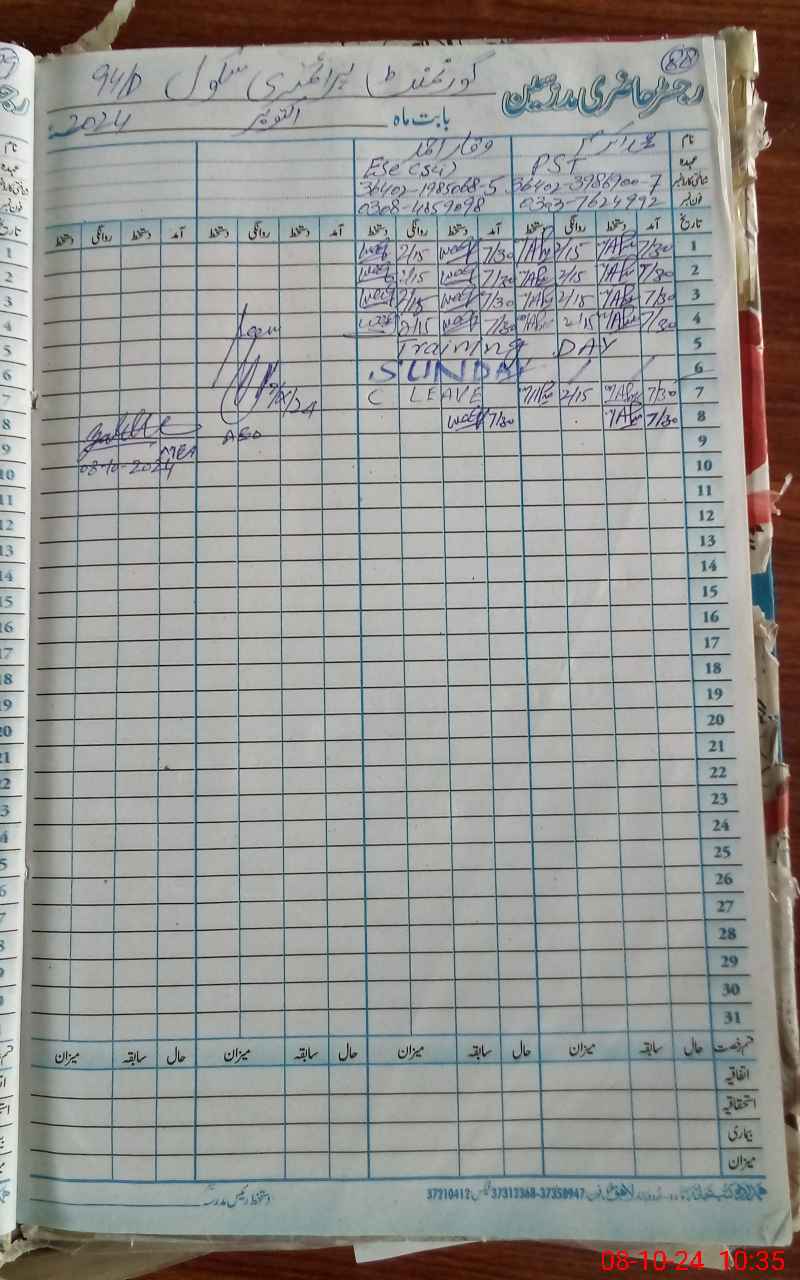 88
رجسٹر حاضری مدرسین
گورنمنٹ پرائمری سکول 94/D
بابت ماہ اکتوبر 2024ء
نام محمد اکرم وقار احمد
عہدہ PST Ese (sci)
شناختی کارڈ نمبر 36402-3986900-7 36402-1985068-5
فون نمبر 0303-7624992 0308-4859098
تاریخ آمد دستخط روانگی دستخط آمد دستخط روانگی دستخط آمد دستخط روانگی دستخط آمد دستخط روانگی دستخط
1 7/30 2/15 7/30 2/15
2 7/30 2/15 7/30 2/15
3 7/30 2/15 7/30 2/15
4 7/30 2/15 7/30 2/15
5 Training DAY
6 SUNDAY
7 7/30 2/15 C LEAVE
8 7/30 7/30
AEO
MEA
08-10-2024
9
10
11
12
13
14
15
16
17
18
19
20
21
22
23
24
25
26
27
28
29
30
31
قسم رخصت حال سابقہ میزان حال سابقہ میزان حال سابقہ میزان حال سابقہ میزان
اتفاقیہ
استحقاقیہ
بیماری
میزان
دستخط رئیس مدرسہ
37312368-37350947 فیکس 37210412
08-10-24 10:35